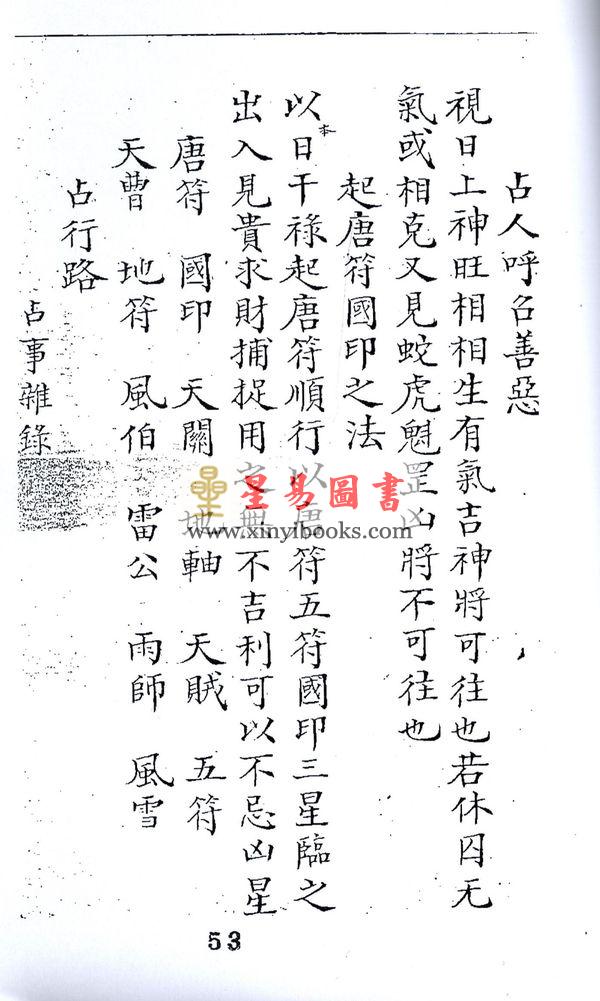 占人呼召善惡
視日上神旺相相生有氣吉神將可往也若休囚无
氣或相克又見蛇虎魁罡凶將不可往也
起唐符國印之法
以本日干祿起唐符順行以唐符五符國印三星臨之
出入見貴求財捕捉用之無不吉利可以不忌凶星
唐符 國印 天關 地軸 天賊 五符
天曹 地符 風伯 雷公 雨師 風雪
占行路
占事雜錄
星易圖書
www.xinyibooks.com
53